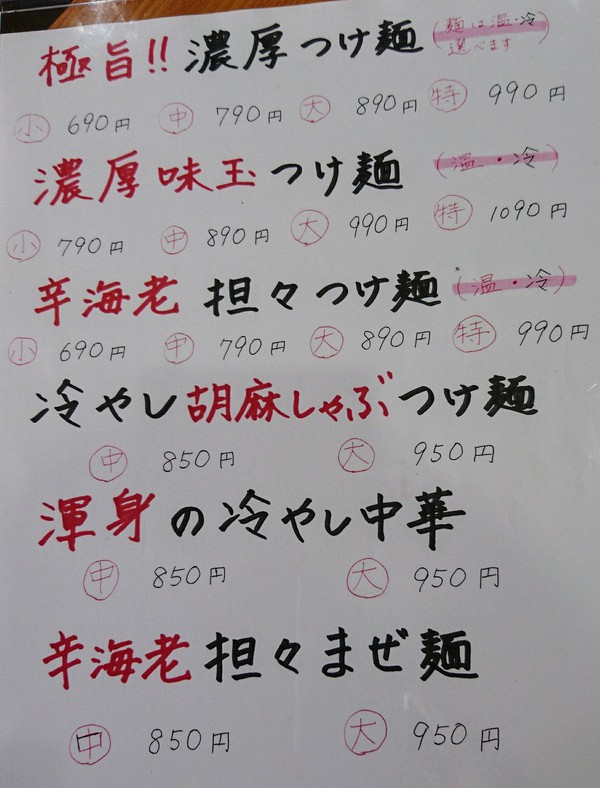 極旨!! 濃厚つけ麺 (麺は温・冷
選べます)
小 690円 中 790円 大 890円 特 990円
濃厚味玉つけ麺 (温・冷)
小 790円 中 890円 大 990円 特 1090円
辛海老 担々つけ麺 (温・冷)
小 690円 中 790円 大 890円 特 990円
冷やし胡麻しゃぶつけ麺
中 850円 大 950円
渾身の冷やし中華
中 850円 大 950円
辛海老担々まぜ麺
中 850円 大 950円